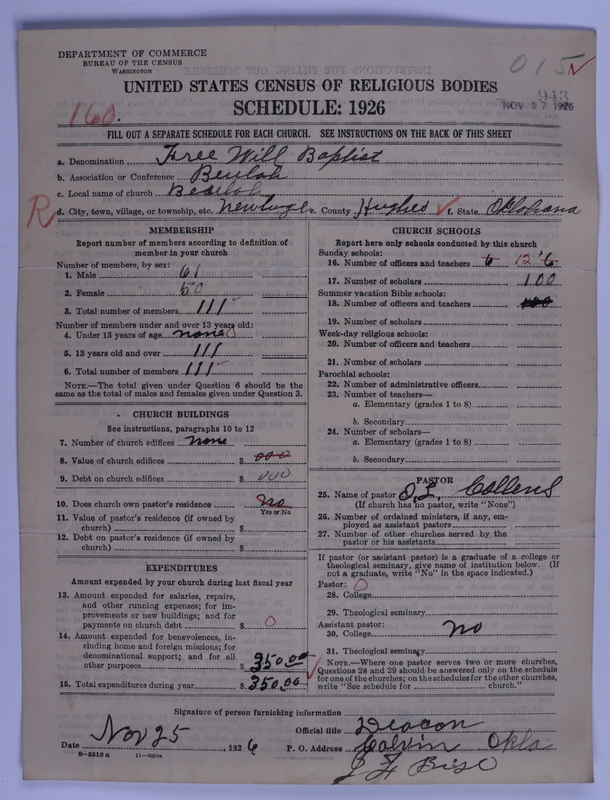 DEPARTMENT OF COMMERCE
BUREAU OF THE CENSUS
WASHINGTON
015
943
NOV 27 1926
UNITED STATES CENSUS OF RELIGIOUS BODIES
SCHEDULE: 1926
160.
FILL OUT A SEPARATE SCHEDULE FOR EACH CHURCH. SEE INSTRUCTIONS ON THE BACK OF THIS SHEET
a. Denomination Free Will Baptist
b. Association or Conference Beulah
c. Local name of church Beaulah
R
d. City, town, village, or township, etc. e. County Hughes f. State. Oklohama
MEMBERSHIP
Report number of members according to definition of
member in your church
Number of members, by sex:
1. Male 61
2. Female 50
3. Total number of members 111
Number of members under and over 13 years old:
4. Under 13 years of age none 0
5. 13 years old and over 111
6. Total number of members 111
NOTE.—The total given under Question 6 should be the
same as the total of males and females given under Question 3.
CHURCH BUILDINGS
See instructions, paragraphs 10 to 12
7. Number of church edifices none
8. Value of church edifices $ 000
9. Debt on church edifices $ 000
10. Does church own pastor's residence No
Yes or No
11. Value of pastor's residence (if owned by
church) $
12. Debt on pastor's residence (if owned by
church) $
EXPENDITURES
Amount expended by your church during last fiscal year
13. Amount expended for salaries, repairs,
and other running expenses; for im-
provements or new buildings; and for
payments on church debt $ 0
14. Amount expended for benevolences, in-
cluding home and foreign missions; for
denominational support; and for all
other purposes $ 350.00
15. Total expenditures during year $ 350.00
CHURCH SCHOOLS
Report here only schools conducted by this church
Sunday schools:
16. Number of officers and teachers 6 12 6
17. Number of scholars 100
Summer vacation Bible schools:
18. Number of officers and teachers
19. Number of scholars
Week-day religious schools:
20. Number of officers and teachers
21. Number of scholars
Parochial schools:
22. Number of administrative officers
23. Number of teachers—
a. Elementary (grades 1 to 8)
b. Secondary
24. Number of scholars—
a. Elementary (grades 1 to 8)
b. Secondary
PASTOR
25. Name of pastor O. L. Collens
(If church has no pastor, write "None")
26. Number of ordained ministers, if any, em-
ployed as assistant pastors
27. Number of other churches served by the
pastor or his assistants
If pastor (or assistant pastor) is a graduate of a college or
theological seminary, give name of institution below. (If
not a graduate, write "No" in the space indicated.)
Pastor: 0
28. College
29. Theological seminary
Assistant pastor:
30. College No
31. Theological seminary
NOTE.—Where one pastor serves two or more churches,
Questions 28 and 29 should be answered only on the schedule
for one of the churches; on the schedules for the other churches,
write "See schedule for church."
Signature of person furnishing information
Official title Deacon
Date Nov 25, 1926 P. O. Address Calvin Okla
8-5518 a